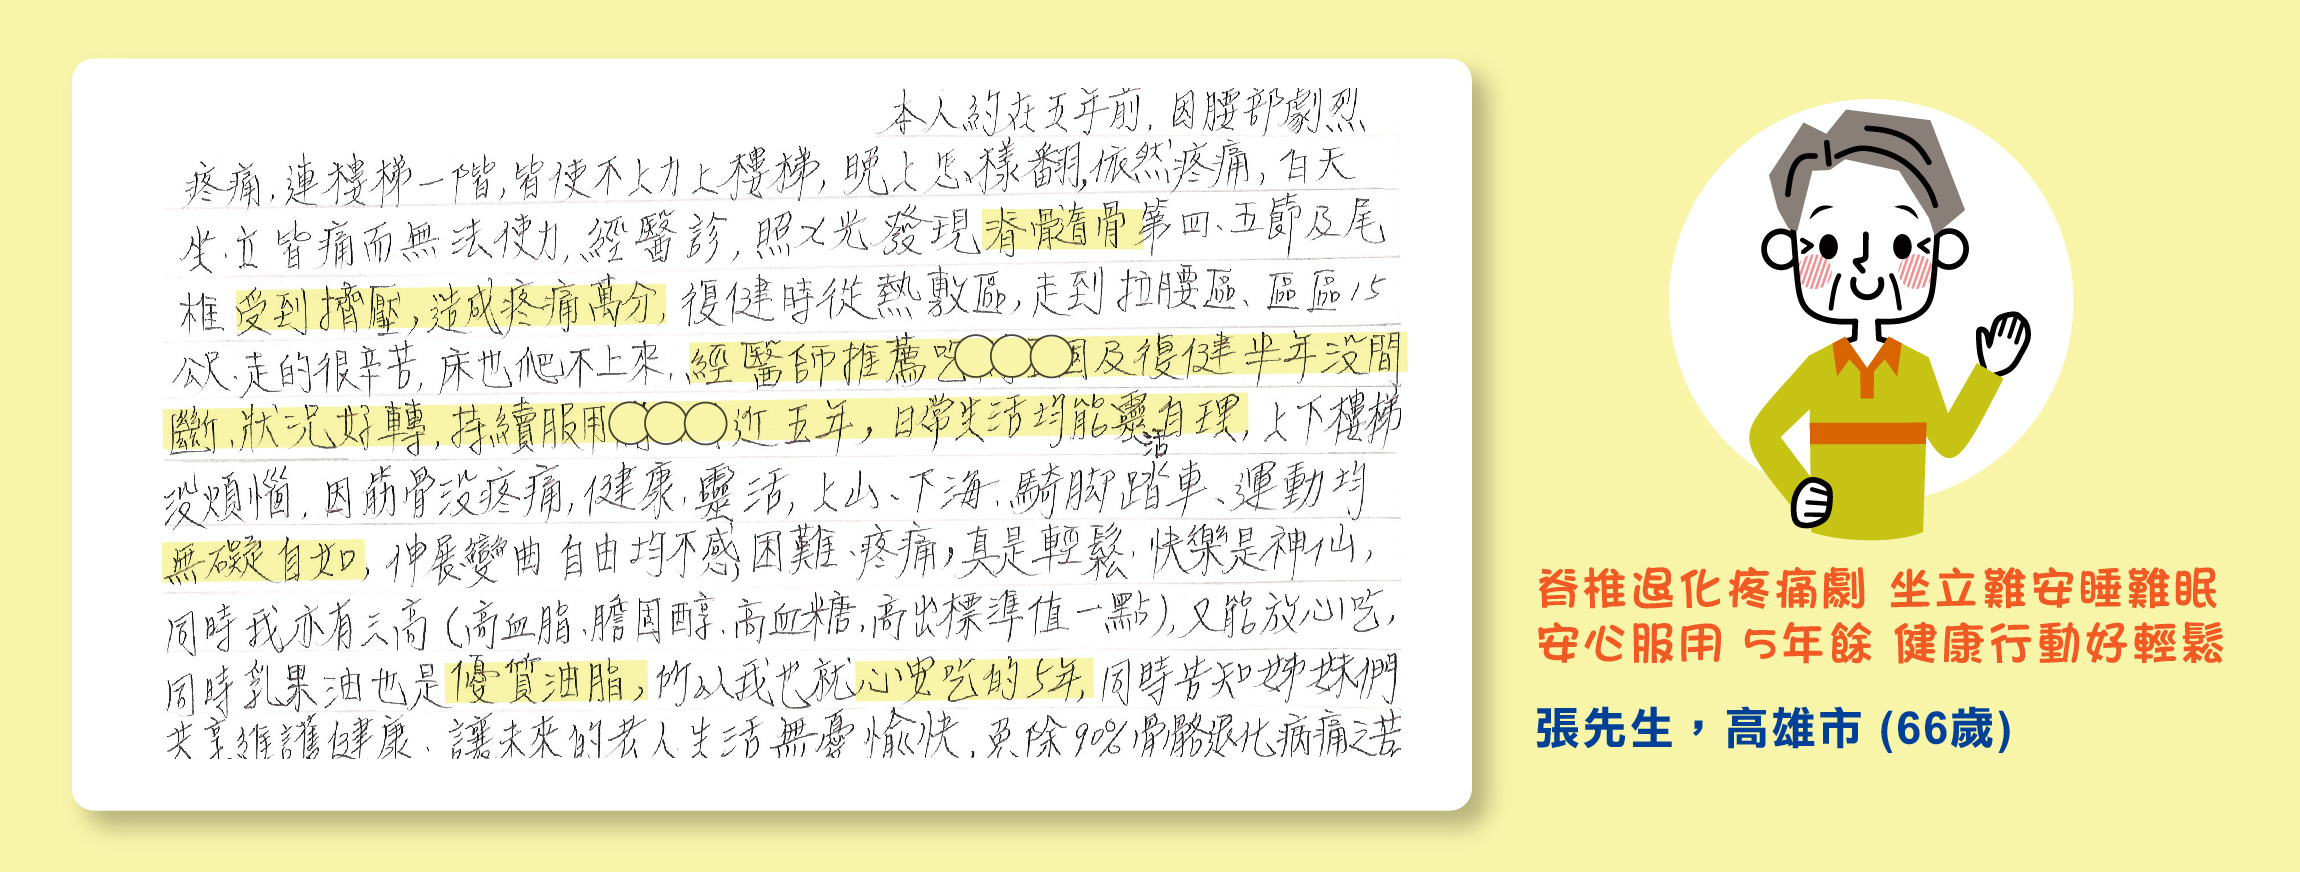 本人約在五年前,因腰部劇烈
疼痛,連樓梯一階,皆使不上力上樓梯,晚上怎樣翻,依然疼痛,白天
坐、立皆痛而無法使力,經醫診,照X光發現脊髓骨第四、五節及尾
椎受到擠壓,造成疼痛萬分,復健時從熱敷區,走到拉腰區、區區15
公尺、走的很辛苦,床也爬不上來,經醫師推薦吃○○○因及復健半年沒間
斷、狀況好轉,持續服用○○○近五年,日常生活均能靈活自理,上下樓梯
沒煩惱,因筋骨沒疼痛,健康、靈活,上山、下海、騎腳踏車、運動均
無礙自如,伸展彎曲自由均不感困難、疼痛,真是輕鬆、快樂是神仙,
同時我亦有三高(高血脂、膽固醇、高血糖,高出標準值一點),又能放心吃,
同時乳果油也是優質油脂,所以我也就心安吃的5年,同時告知姊妹們
共享維護健康、讓未來的老人生活無憂愉快,免除90%骨骼退化病痛之苦
脊椎退化疼痛劇 坐立難安睡難眠
安心服用 5年餘 健康行動好輕鬆
張先生,高雄市 (66歲)